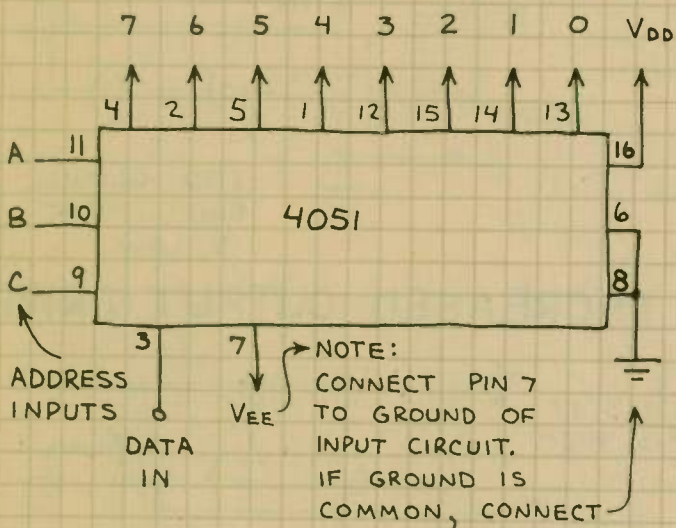 7 6 5 4 3 2 1 0 VDD
4 2 5 1 12 15 14 13
A 11 16
4051
B 10 6
C 9 8
3 7
ADDRESS
INPUTS
DATA
IN
VEE
NOTE:
CONNECT PIN 7
TO GROUND OF
INPUT CIRCUIT.
IF GROUND IS
COMMON, CONNECT